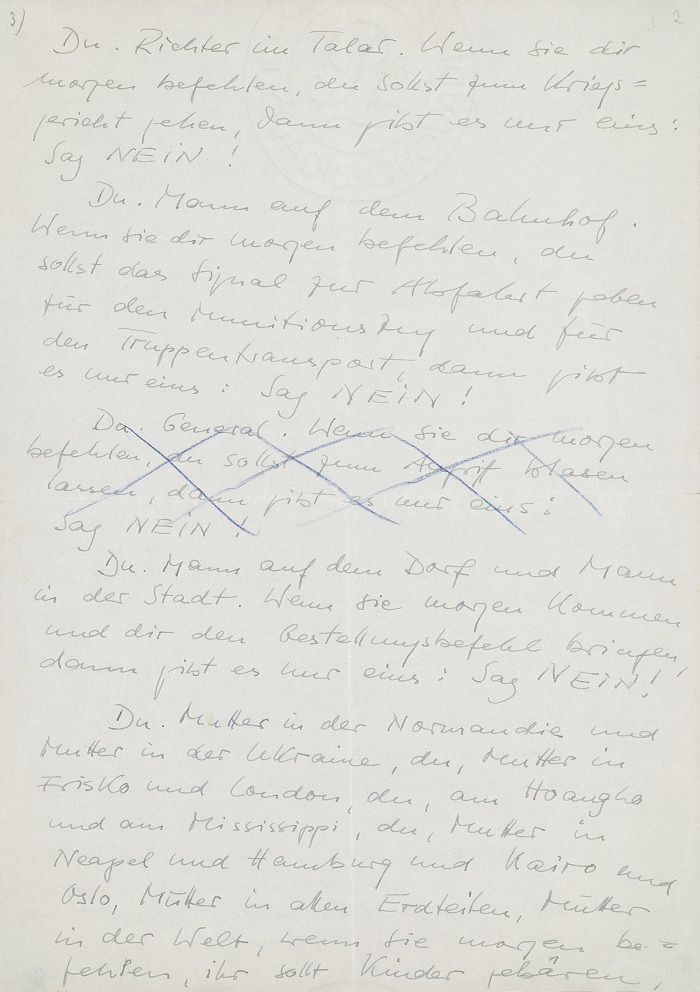 3)
2
Du. Richter im Talar. Wenn sie dir
morgen befehlen, du sollst zum Kriegs=
gericht gehen, dann gibt es nur eins:
Sag NEIN !
Du. Mann auf dem Bahnhof.
Wenn sie dir morgen befehlen, du
sollst das Signal zur Abfahrt geben
für den Munitionszug und für
den Truppentransport, dann gibt
es nur eins: Sag NEIN !
Du. General. Wenn sie dir morgen
befehlen, du sollst zum Angriff blasen
lassen, dann gibt es nur eins:
Sag NEIN !
Du. Mann auf dem Dorf und Mann
in der Stadt. Wenn sie morgen kommen
und dir den Gestellungsbefehl bringen,
dann gibt es nur eins: Sag NEIN !
Du. Mutter in der Normandie und
Mutter in der Ukraine, du, Mutter in
Frisko und London, du, am Hoangho
und am Mississippi, du, Mutter in
Neapel und Hamburg und Kairo und
Oslo, Mütter in allen Erdteilen, Mütter
in der Welt, wenn sie morgen be=
fehlen, ihr sollt Kinder gebären,